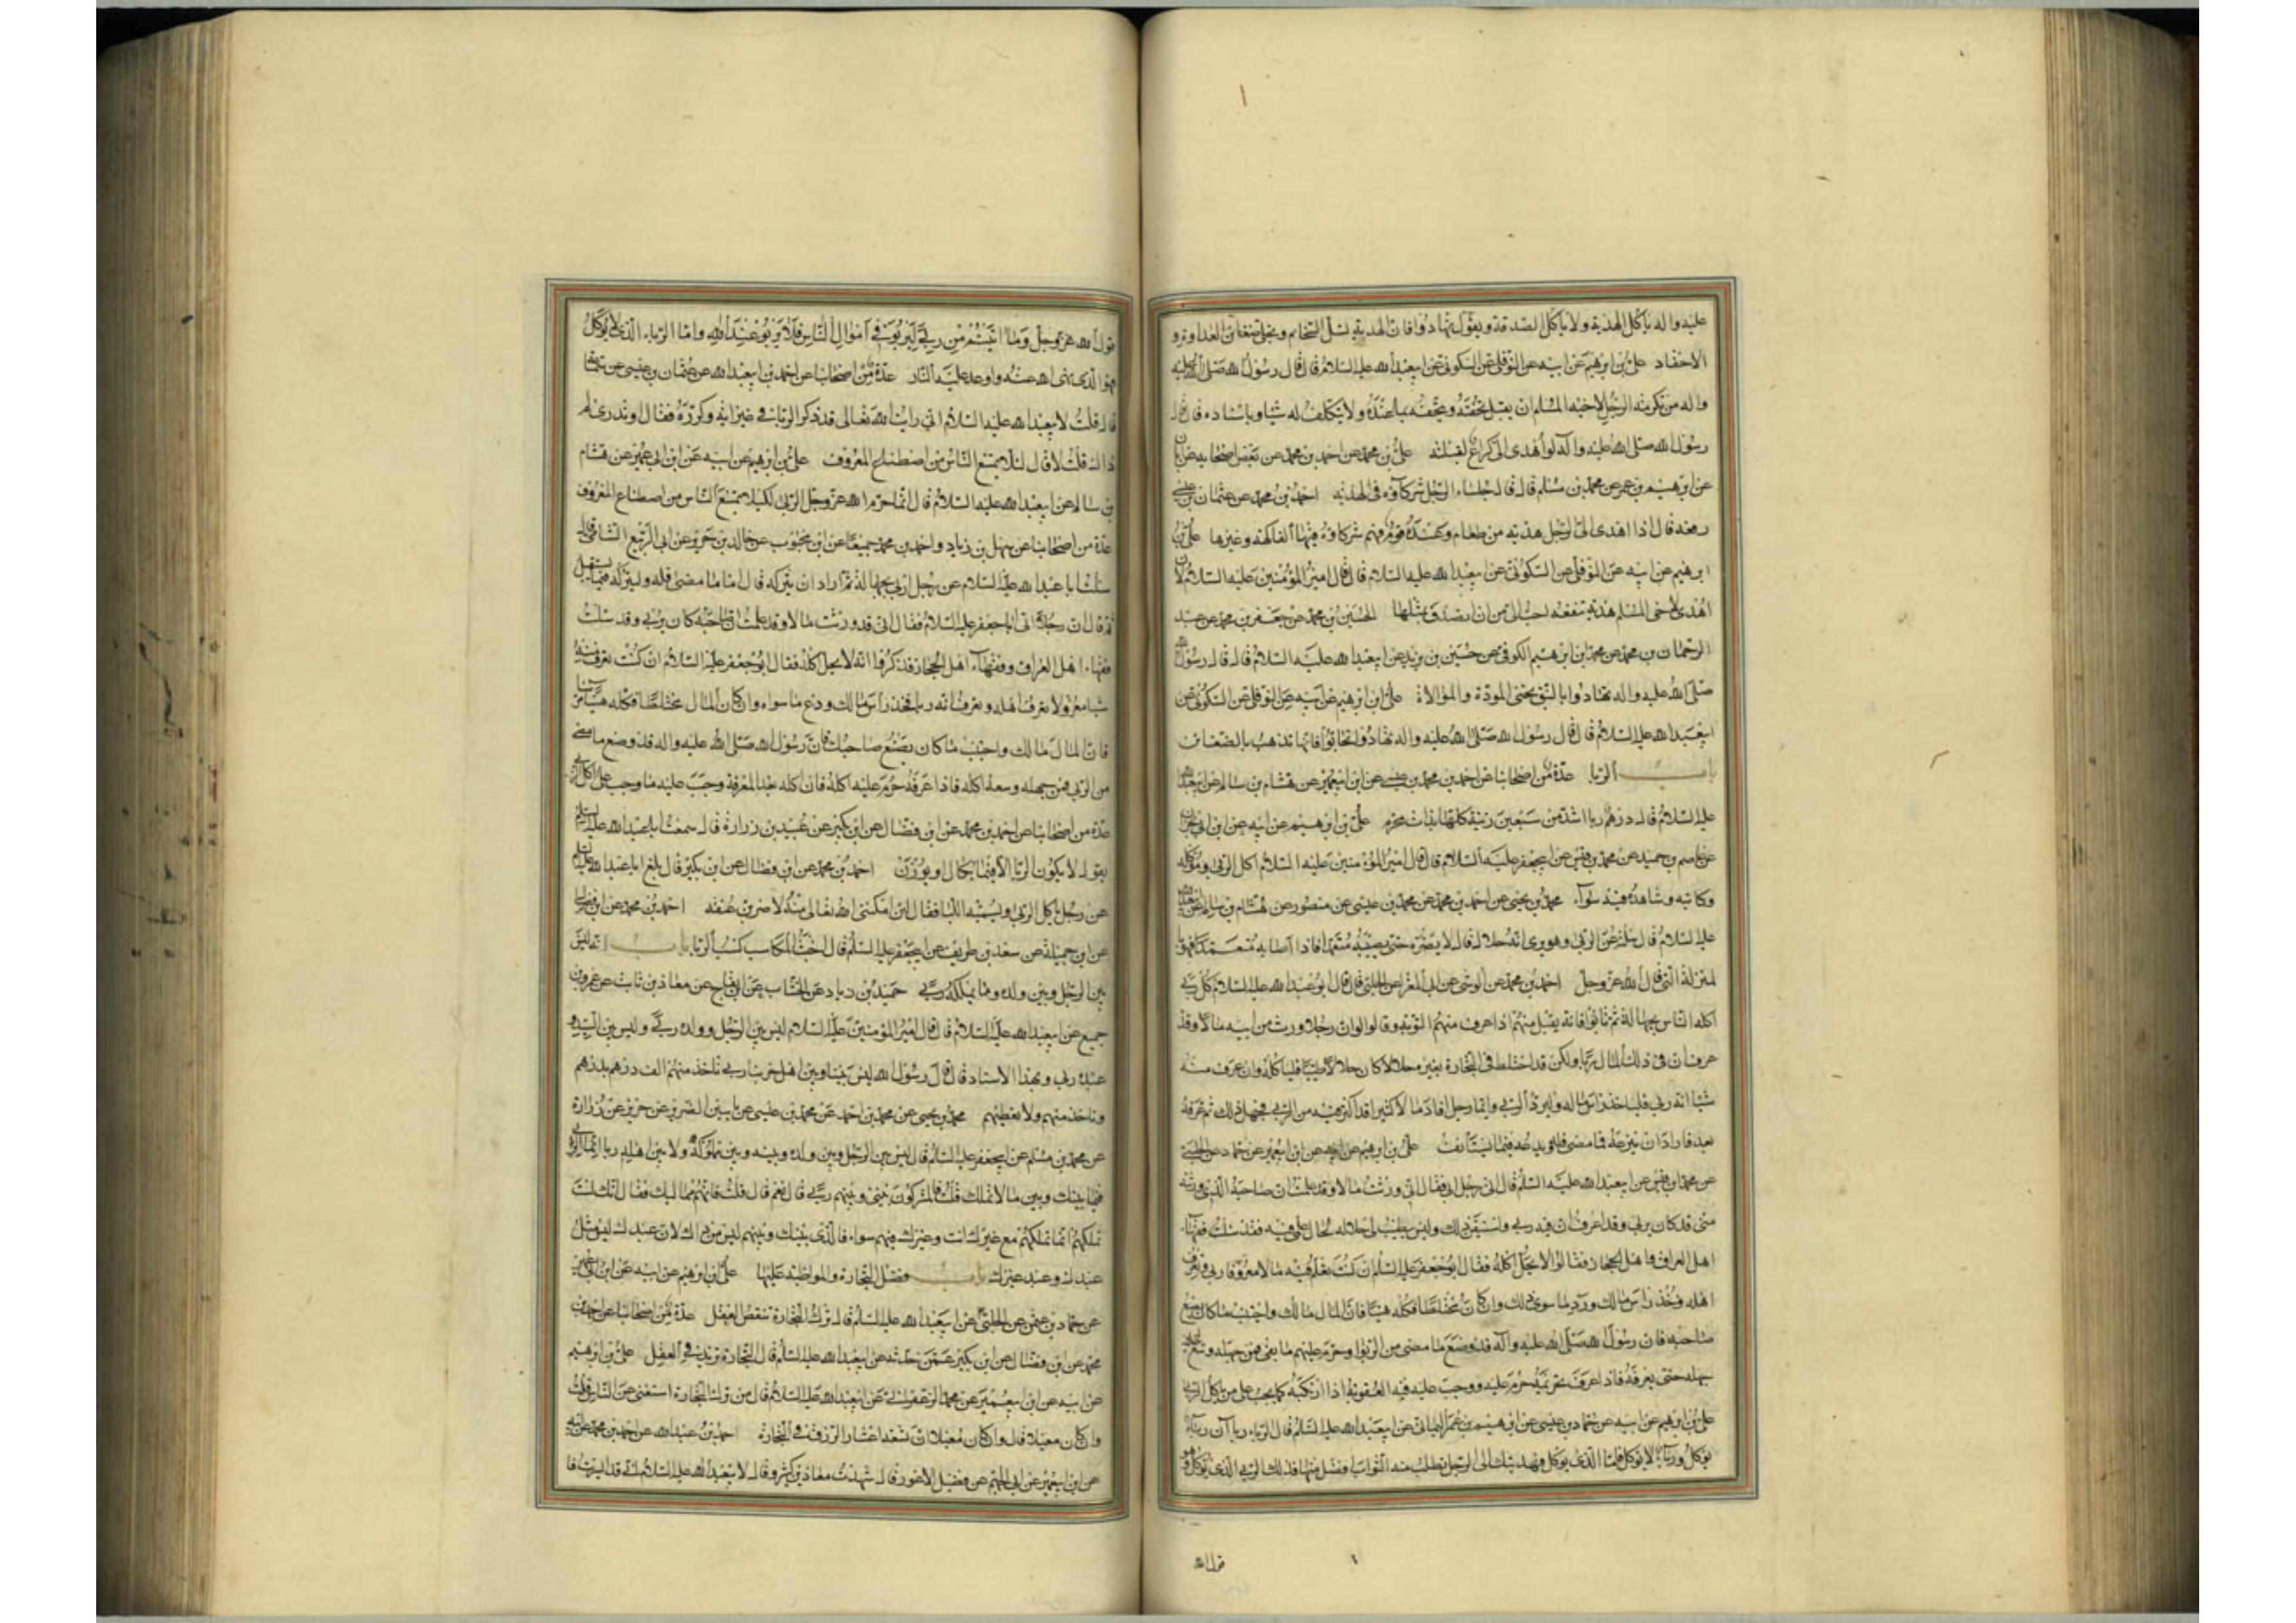 عليه واله ياكل الهدية ولا ياكل الصدقة ويقول تهادوا فان الهدية تسل السخائم وتجلى ضغائن العداوة و
الاحقاد علي بن ابرهيم عن ابيه عن النوفلي عن السكوني عن ابيعبد الله عليه السلام قال قال رسول الله صلى الله عليه
واله من تكرمة الرجل لاخيه المسلم ان يقبل تحفته ويتحفه بما عنده ولا يتكلف له شيا وباسناده قال قال
رسول الله صلى الله عليه واله لو اهدى الى كراع لقبلته علي بن محمد عن احمد بن محمد عن بعض اصحابه عن ابان
عن ابرهيم بن عمر عن محمد بن مسلم قال قال جلساء الرجل شركاؤه في الهدية احمد بن محمد عن عثمان بن عيسى
رفعه قال اذا اهدى الى الرجل هدية من طعام وعنده قوم فهم شركاؤه فيها الفاكهة وغيرها علي بن
ابرهيم عن ابيه عن النوفلي عن السكوني عن ابيعبد الله عليه السلام قال قال امير المؤمنين عليه السلام لان
اهدى لاخى المسلم هدية تنفعه احب الى من ان اتصدق بمثلها الحسين بن محمد عن جعفر بن محمد عن عبد
الرحمان بن محمد عن محمد بن ابرهيم الكوفي عن حسين بن يزيد عن ابيعبد الله عليه السلام قال قال رسول الله
صلى الله عليه واله تهادوا بالنبق يحيى المودة والموالاة علي بن ابرهيم عن ابيه عن النوفلي عن السكوني عن
ابيعبد الله عليه السلام قال قال رسول الله صلى الله عليه واله تهادوا تحابوا فانها تذهب بالضغائن
باب الربا عدة من اصحابنا عن احمد بن محمد بن عيسى عن ابن ابيعمير عن هشام بن سالم عن ابيعبد الله
عليه السلام قال درهم ربا اشد من سبعين زنية كلها بذات محرم علي بن ابرهيم عن ابيه عن ابن ابي نجران
عن عاصم بن حميد عن محمد بن قيس عن ابيجعفر عليه السلام قال قال امير المؤمنين عليه السلام اكل الربى وموكله
وكاتبه وشاهده فيه سواء محمد بن يحيى عن احمد بن محمد عن محمد بن عيسى عن منصور عن هشام بن سالم عن ابيعبد الله
عليه السلام قال سئلته عن الربى وهو يرى انه حلال قال لا يضره حتى يصيبه متعمدا فاذا اصابه متعمدا فهو با
لمنزلة التي قال الله عز وجل احمد بن محمد عن الوشى عن ابي المغرا عن الحلبي قال قال ابو عبد الله عليه السلام كل ربى
اكله الناس بجهالة ثم تابوا فانه يقبل منهم اذا عرف منهم التوبة وقالوا لو ان رجلا ورث من ابيه مالا وقد
عرف ان في ذلك المال ربا ولكن قد اختلط في التجارة بغير حلال كان حلالا طيبا فلياكله وان عرف منه
شيا انه ربى فلياخذ راس ماله وليرد الربى وايما رجل افاد مالا كثيرا قد اكثر فيه من الربى فجهل ذلك ثم عرفه
بعد فاراد ان ينزعه فما مضى فله ويدعه فيما يستأنف علي بن ابرهيم عن ابيه عن ابن ابيعمير عن حماد عن الحلبي
عن محمد بن قيس عن ابيعبد الله عليه السلام قال اتى رجل ابي فقال اني ورثت مالا وقد علمت ان صاحبه الذي ورثته
منى قد كان يربى وقد اعرف ان فيه ربى واستيقن ذلك وليس يطيب لى حلاله لحال علمى فيه فقد سئلت فقهاء
اهل العراق واهل الحجاز فقالوا لا يحل اكله فقال ابو جعفر عليه السلام ان كنت تعلم فيه مالا معروفا ربى وتعرف
اهله فخذ راس مالك ورد ما سوى ذلك وان كان مختلطا فكله هنيا فان المال مالك واجتنب ما كان يصنع
صاحبه فان رسول الله صلى الله عليه واله قد وضع ما مضى من الربوا وحرم عليهم ما بقى فمن جهله وسع له
جهله حتى يعرفه فاذا عرف تحريمه حرم عليه ووجب عليه فيه العقوبة اذا ارتكبه كما يجب على من ياكل الربى
علي بن ابرهيم عن ابيه عن حماد بن عيسى عن ابرهيم بن عمر اليمانى عن ابيعبد الله عليه السلام قال الرباء رباان رباء
يوكل ورباء لا يوكل فاما الذي يوكل فهديتك الى الرجل تطلب منه الثواب افضل منها فذلك الربى الذي يوكل وهو
قول الله
قول الله عز وجل وما اتيتم من ربى ليربوا فى اموال الناس فلا يربو عند الله واما الرباء الذي لا يوكل
فهو الذي نهى الله عنه واوعد عليه النار عدة من اصحابنا عن احمد بن ابيعبد الله عن عثمان بن عيسى عن سماعة
قال قلت لابيعبد الله عليه السلام انى رايت الله تعالى قد ذكر الربا في غير اية وكرره فقال اوتدرى لم
ذاك قلت لا قال لئلا يمتنع الناس من اصطناع المعروف علي بن ابرهيم عن ابيه عن ابن ابي عمير عن هشام
بن سالم عن ابيعبد الله عليه السلام قال انما حرم الله عز وجل الربى لكيلا يمتنع الناس من اصطناع المعروف
عدة من اصحابنا عن سهل بن زياد واحمد بن محمد جميعا عن ابن محبوب عن خالد بن جرير عن ابي الربيع الشامي قال
سئلت ابا عبد الله عليه السلام عن رجل اربى بجهالة ثم اراد ان يتركه قال اما ما مضى فله وليتركه فيما يستقبل
ثم قال ان رجلا اتى ابا جعفر عليه السلام فقال انى قد ورثت مالا وقد علمت ان صاحبه كان يربى وقد سئلت
فقهاء اهل العراق وفقهاء اهل الحجاز فذكروا انه لا يحل اكله فقال ابو جعفر عليه السلام ان كنت تعرف منه
شيا معزولا تعرف اهله وتعرف انه ربا فخذ راس مالك ودع ما سواه وان كان المال مختلطا فكله هنيئا مريئا
فان المال مالك واجتنب ما كان يصنع صاحبك فان رسول الله صلى الله عليه واله قد وضع ما مضى
من الربى فمن جهله وسعه اكله فاذا عرفه حرم عليه اكله فان اكله بعد المعرفة وجب عليه ما وجب على اكل الربى
عدة من اصحابنا عن احمد بن محمد عن ابن فضال عن ابن بكير عن عبيد بن زرارة قال سمعت ابا عبد الله عليه السلام
يقول لا يكون الربا الا فيما يكال ويوزن احمد بن محمد عن ابن فضال عن ابن بكير قال بلغ ابا عبد الله عليه السلام
عن رجل ياكل الربى ويسميه اللبا فقال لئن امكننى الله تعالى منه لاضربن عنقه احمد بن محمد عن ابن فضال
عن ابي جميلة عن سعد بن طريف عن ابيجعفر عليه السلام قال اخبث المكاسب كسب الربا باب انه ليس
بين الرجل وبين ولده وما يملكه ربى حميد بن زياد عن الخشاب عن ابن بقاح عن معاذ بن ثابت عن عمرو بن
جميع عن ابيعبد الله عليه السلام قال قال امير المؤمنين عليه السلام ليس بين الرجل وولده ربى وليس بين السيد و
عبده ربى وبهذا الاسناد قال قال رسول الله ليس بيننا وبين اهل حربنا ربى ناخذ منهم الف درهم بدرهم
وناخذ منهم ولا نعطيهم محمد بن يحيى عن محمد بن احمد عن محمد بن عيسى عن ياسين الضرير عن حريز عن زرارة
عن محمد بن مسلم عن ابيجعفر عليه السلام قال ليس بين الرجل وبين ولده وبينه وبين مملوكه ولا بين اهله ربا انما الربى
فيما بينك وبين ما لا تملك قلت فالمشركون بينى وبينهم ربى قال نعم قال قلت فانهم مماليك فقال انك لست
تملكهم انما تملكهم مع غيرك انت وغيرك فيهم سواء فالذى بينك وبينهم ليس من ذلك لان عبدك ليس مثل
عبدك وعبد غيرك باب فضل التجارة والمواظبة عليها علي بن ابرهيم عن ابيه عن ابن ابي عمير
عن حماد بن عثمن عن الحلبي عن ابيعبد الله عليه السلام قال ترك التجارة ينقص العقل عدة من اصحابنا عن احمد بن
محمد عن ابن فضال عن ابن بكير عمن حدثه عن ابيعبد الله عليه السلام قال التجارة تزيد في العقل علي بن ابرهيم
عن ابيه عن ابن ابيعمير عن محمد الزعفرانى عن ابيعبد الله عليه السلام قال من ترك التجارة استغنى عن الناس قلت
وان كان معيلا قال وان كان معيلا ان تسعة اعشار الرزق في التجارة احمد بن عبد الله عن احمد بن محمد عن ابيه
عن ابن ابيعمير عن ابي الجهم عن فضيل الاعور قال شهدت معاذ بن كثير وقال لابيعبد الله عليه السلام انى قد ايسرت فا